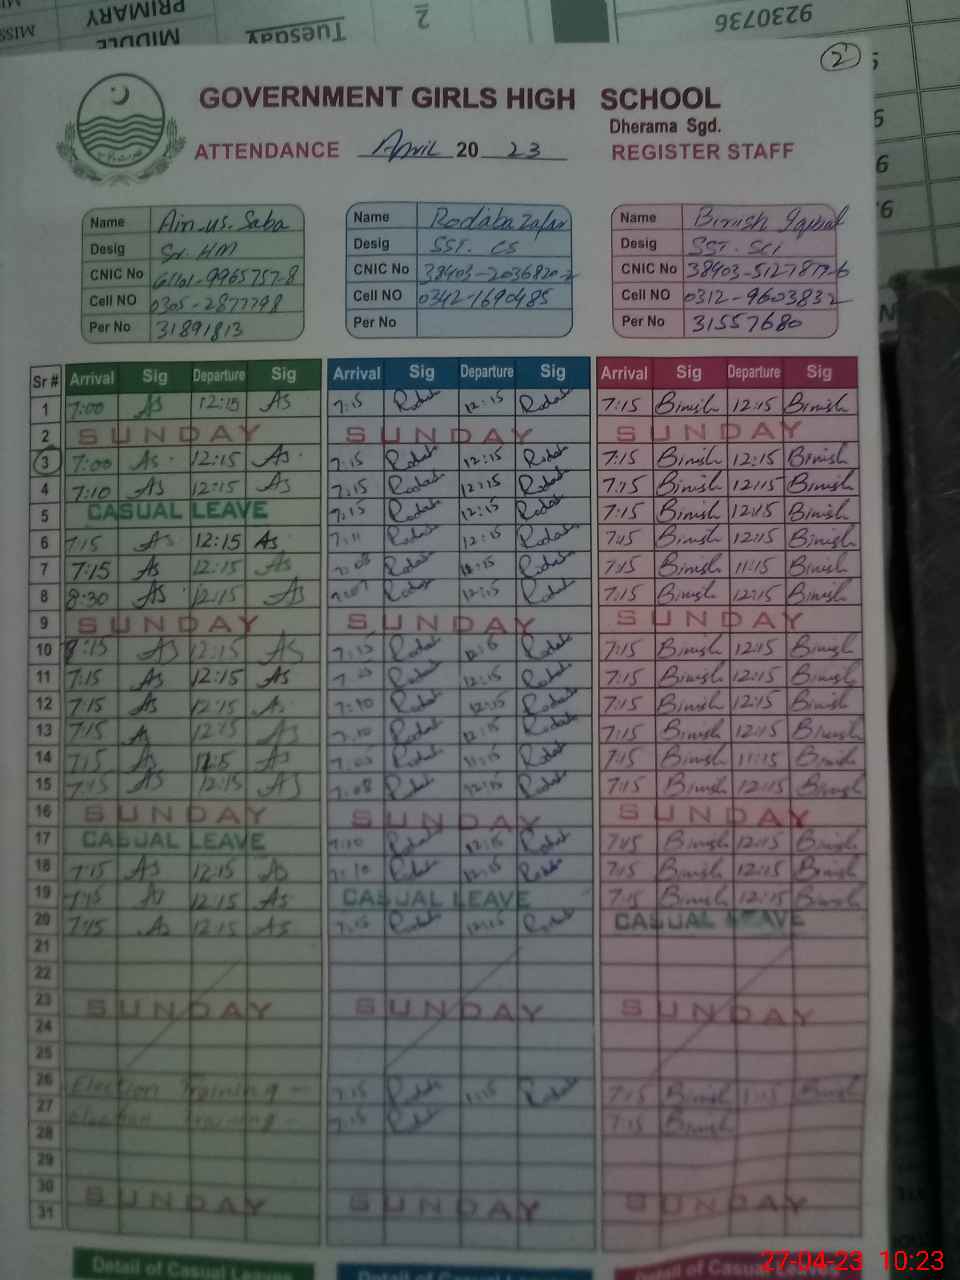 PRIMARY
MIDDLE
Tuesday
2
9230736
2
GOVERNMENT GIRLS HIGH SCHOOL
Dherama Sgd.
ATTENDANCE April 20 23 REGISTER STAFF
Name Ain-us-Saba
Desig Sr. HM
CNIC No
Cell NO 0305-2877298
Per No 31891813
Name Rodaba Zafar
Desig SST. CS
CNIC No 38403-2036820-2
Cell NO 0342-1690485
Per No
Name Binish Iqbal
Desig SST. SCI
CNIC No 38403-5127817-6
Cell NO 0312-9603832
Per No 31557680
Sr # Arrival Sig Departure Sig Arrival Sig Departure Sig Arrival Sig Departure Sig
1 7:00 As 12:15 As 7:15 Rodab 12:15 Rodab 7:15 Binish 12:15 Binish
2 SUNDAY SUNDAY SUNDAY
3 7:00 As 12:15 As 7:15 Rodab 12:15 Rodab 7:15 Binish 12:15 Binish
4 7:10 As 12:15 As 7:15 Rodab 12:15 Rodab 7:15 Binish 12:15 Binish
5 CASUAL LEAVE 7:15 Rodab 12:15 Rodab 7:15 Binish 12:15 Binish
6 7:15 As 12:15 As 7:11 Rodab 12:15 Rodab 7:15 Binish 12:15 Binish
7 7:15 As 12:15 As 7:08 Rodab Rodab 7:15 Binish 11:15 Binish
8 8:30 As 12:15 As 7:07 Rodab 12:15 Rodab 7:15 Binish 12:15 Binish
9 SUNDAY SUNDAY SUNDAY
10 8:15 As 12:15 As 7:15 Rodab Rodab 7:15 Binish 12:15 Binish
11 7:15 As 12:15 As Rodab 12:15 Rodab 7:15 Binish 12:15 Binish
12 7:15 As 12:15 As 7:10 Rodab 12:15 Rodab 7:15 Binish 12:15 Binish
13 7:15 A 12:15 As 7:10 Rodab 12:15 Rodab 7:15 Binish 12:15 Binish
14 7:15 As As 7:05 Rodab 11:15 Rodab 7:15 Binish 11:15 Binish
15 7:15 As 12:15 As 7:08 Rodab 12:15 Rodab 7:15 Binish 12:15 Binish
16 SUNDAY SUNDAY SUNDAY
17 CASUAL LEAVE 7:10 Rodab 12:15 Rodab 7:15 Binish 12:15 Binish
18 7:15 As 12:15 As 7:10 Rodab 12:15 Rodab 7:15 Binish 12:15 Binish
19 7:15 As 12:15 As CASUAL LEAVE 7:15 Binish 12:15 Binish
20 7:15 As 12:15 As 7:15 Rodab 12:15 Rodab CASUAL LEAVE
21
22
23 SUNDAY SUNDAY SUNDAY
24
25
26 Election Training - 7:15 Rodab 1:15 Rodab 7:15 Binish 1:15 Binish
27 Election Training - 7:15 Rodab 7:15 Binish
28
29
30 SUNDAY SUNDAY SUNDAY
31
Detail of Casual Leaves Detail of Casual Leaves Detail of Casual Leaves
27-04-23 10:23